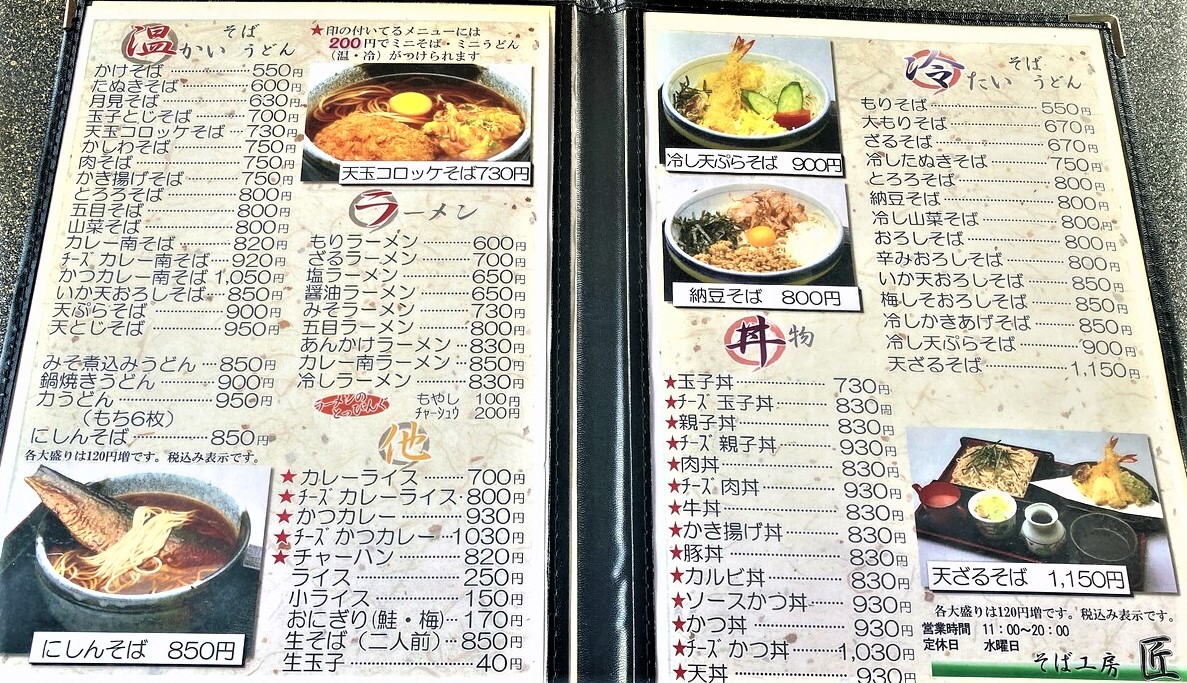 温かい そば うどん
かけそば 550円
たぬきそば 600円
月見そば 630円
玉子とじそば 700円
天玉コロッケそば 730円
かしわそば 750円
肉そば 750円
かき揚げそば 750円
とろろそば 800円
五目そば 800円
山菜そば 800円
カレー南そば 820円
チーズカレー南そば 920円
かつカレー南そば 1,050円
いか天おろしそば 850円
天ぷらそば 900円
天とじそば 950円
みそ煮込みうどん 850円
鍋焼きうどん 900円
力うどん 950円
(もち6枚)
にしんそば 850円
各大盛りは120円増です。税込み表示です。
にしんそば 850円
★印の付いてるメニューには
200円でミニそば・ミニうどん
(温・冷)がつけられます
天玉コロッケそば730円
ラーメン
もりラーメン 600円
ざるラーメン 700円
塩ラーメン 650円
醤油ラーメン 650円
みそラーメン 730円
五目ラーメン 800円
あんかけラーメン 830円
カレー南ラーメン 850円
冷しラーメン 830円
ラーメンのとっぴんぐ
もやし 100円
チャーシュウ 200円
他
★カレーライス 700円
★チーズカレーライス 800円
★かつカレー 930円
★チーズかつカレー 1030円
★チャーハン 820円
ライス 250円
小ライス 150円
おにぎり(鮭・梅) 170円
生そば(二人前) 850円
生玉子 40円
冷し天ぷらそば 900円
納豆そば 800円
丼物
★玉子丼 730円
★チーズ玉子丼 830円
★親子丼 830円
★チーズ親子丼 930円
★肉丼 830円
★チーズ肉丼 930円
★牛丼 930円
★かき揚げ丼 830円
★豚丼 830円
★カルビ丼 830円
★ソースかつ丼 930円
★かつ丼 930円
★チーズかつ丼 1,030円
★天丼 930円
冷たい そば うどん
もりそば 550円
大もりそば 670円
ざるそば 670円
冷したぬきそば 750円
とろろそば 800円
納豆そば 800円
冷し山菜そば 800円
おろしそば 800円
辛みおろしそば 800円
いか天おろしそば 850円
梅しそおろしそば 850円
冷しかきあげそば 850円
冷し天ぷらそば 900円
天ざるそば 1,150円
天ざるそば 1,150円
各大盛りは120円増です。税込み表示です。
営業時間 11:00~20:00
定休日 水曜日
そば工房 匠